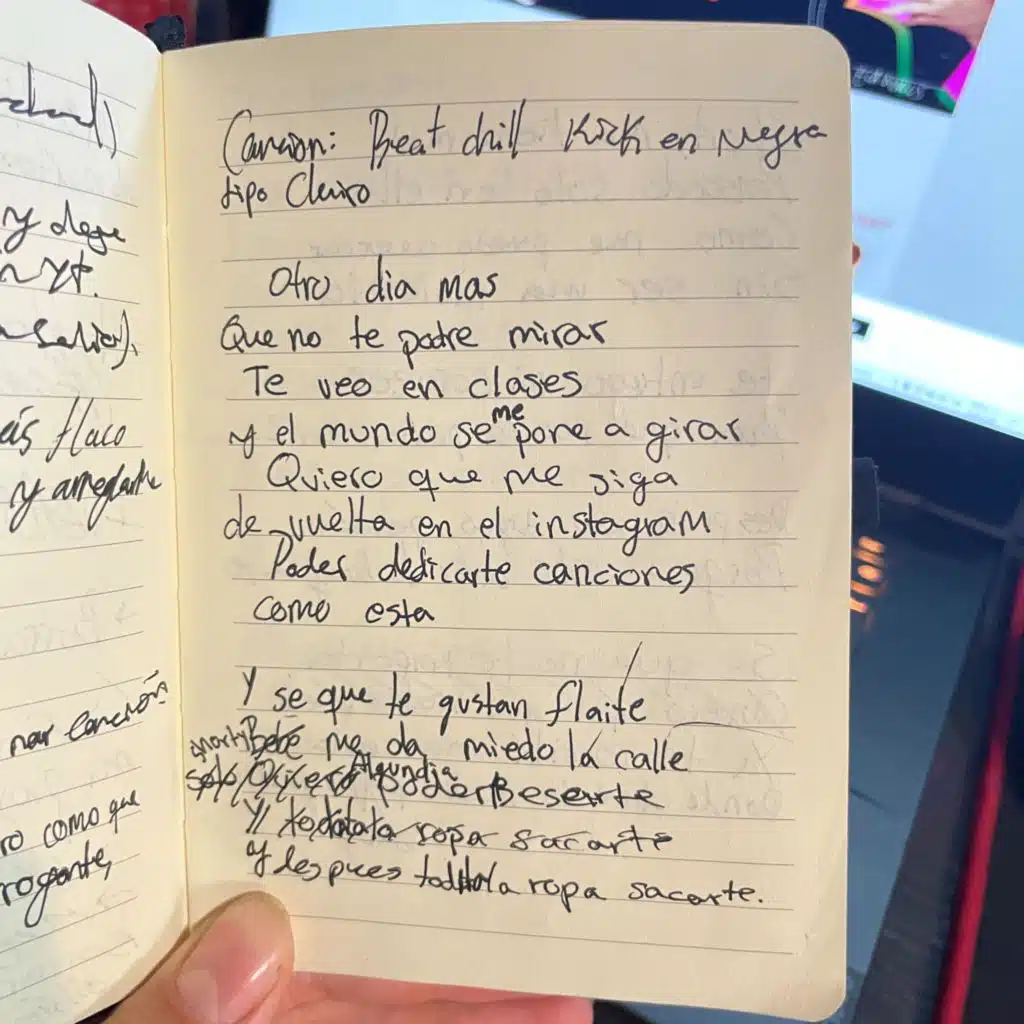 y dege
n yt.
ás flaco
y arreglarte
nar canción
ro como que
rogante,
Canción: Beat drill Kick en Negra
tipo Clairo
Otro dia mas
Que no te podre mirar
Te veo en clases
y el mundo se me pone a girar
Quiero que me siga
de vuelta en el instagram
Poder dedicarte canciones
como esta
Y se que te gustan flaite
shorty Bebé me da miedo la calle
solo Quiero Algundia poder Besarte
Y toda la ropa sacarte
y despues todita la ropa sacarte.